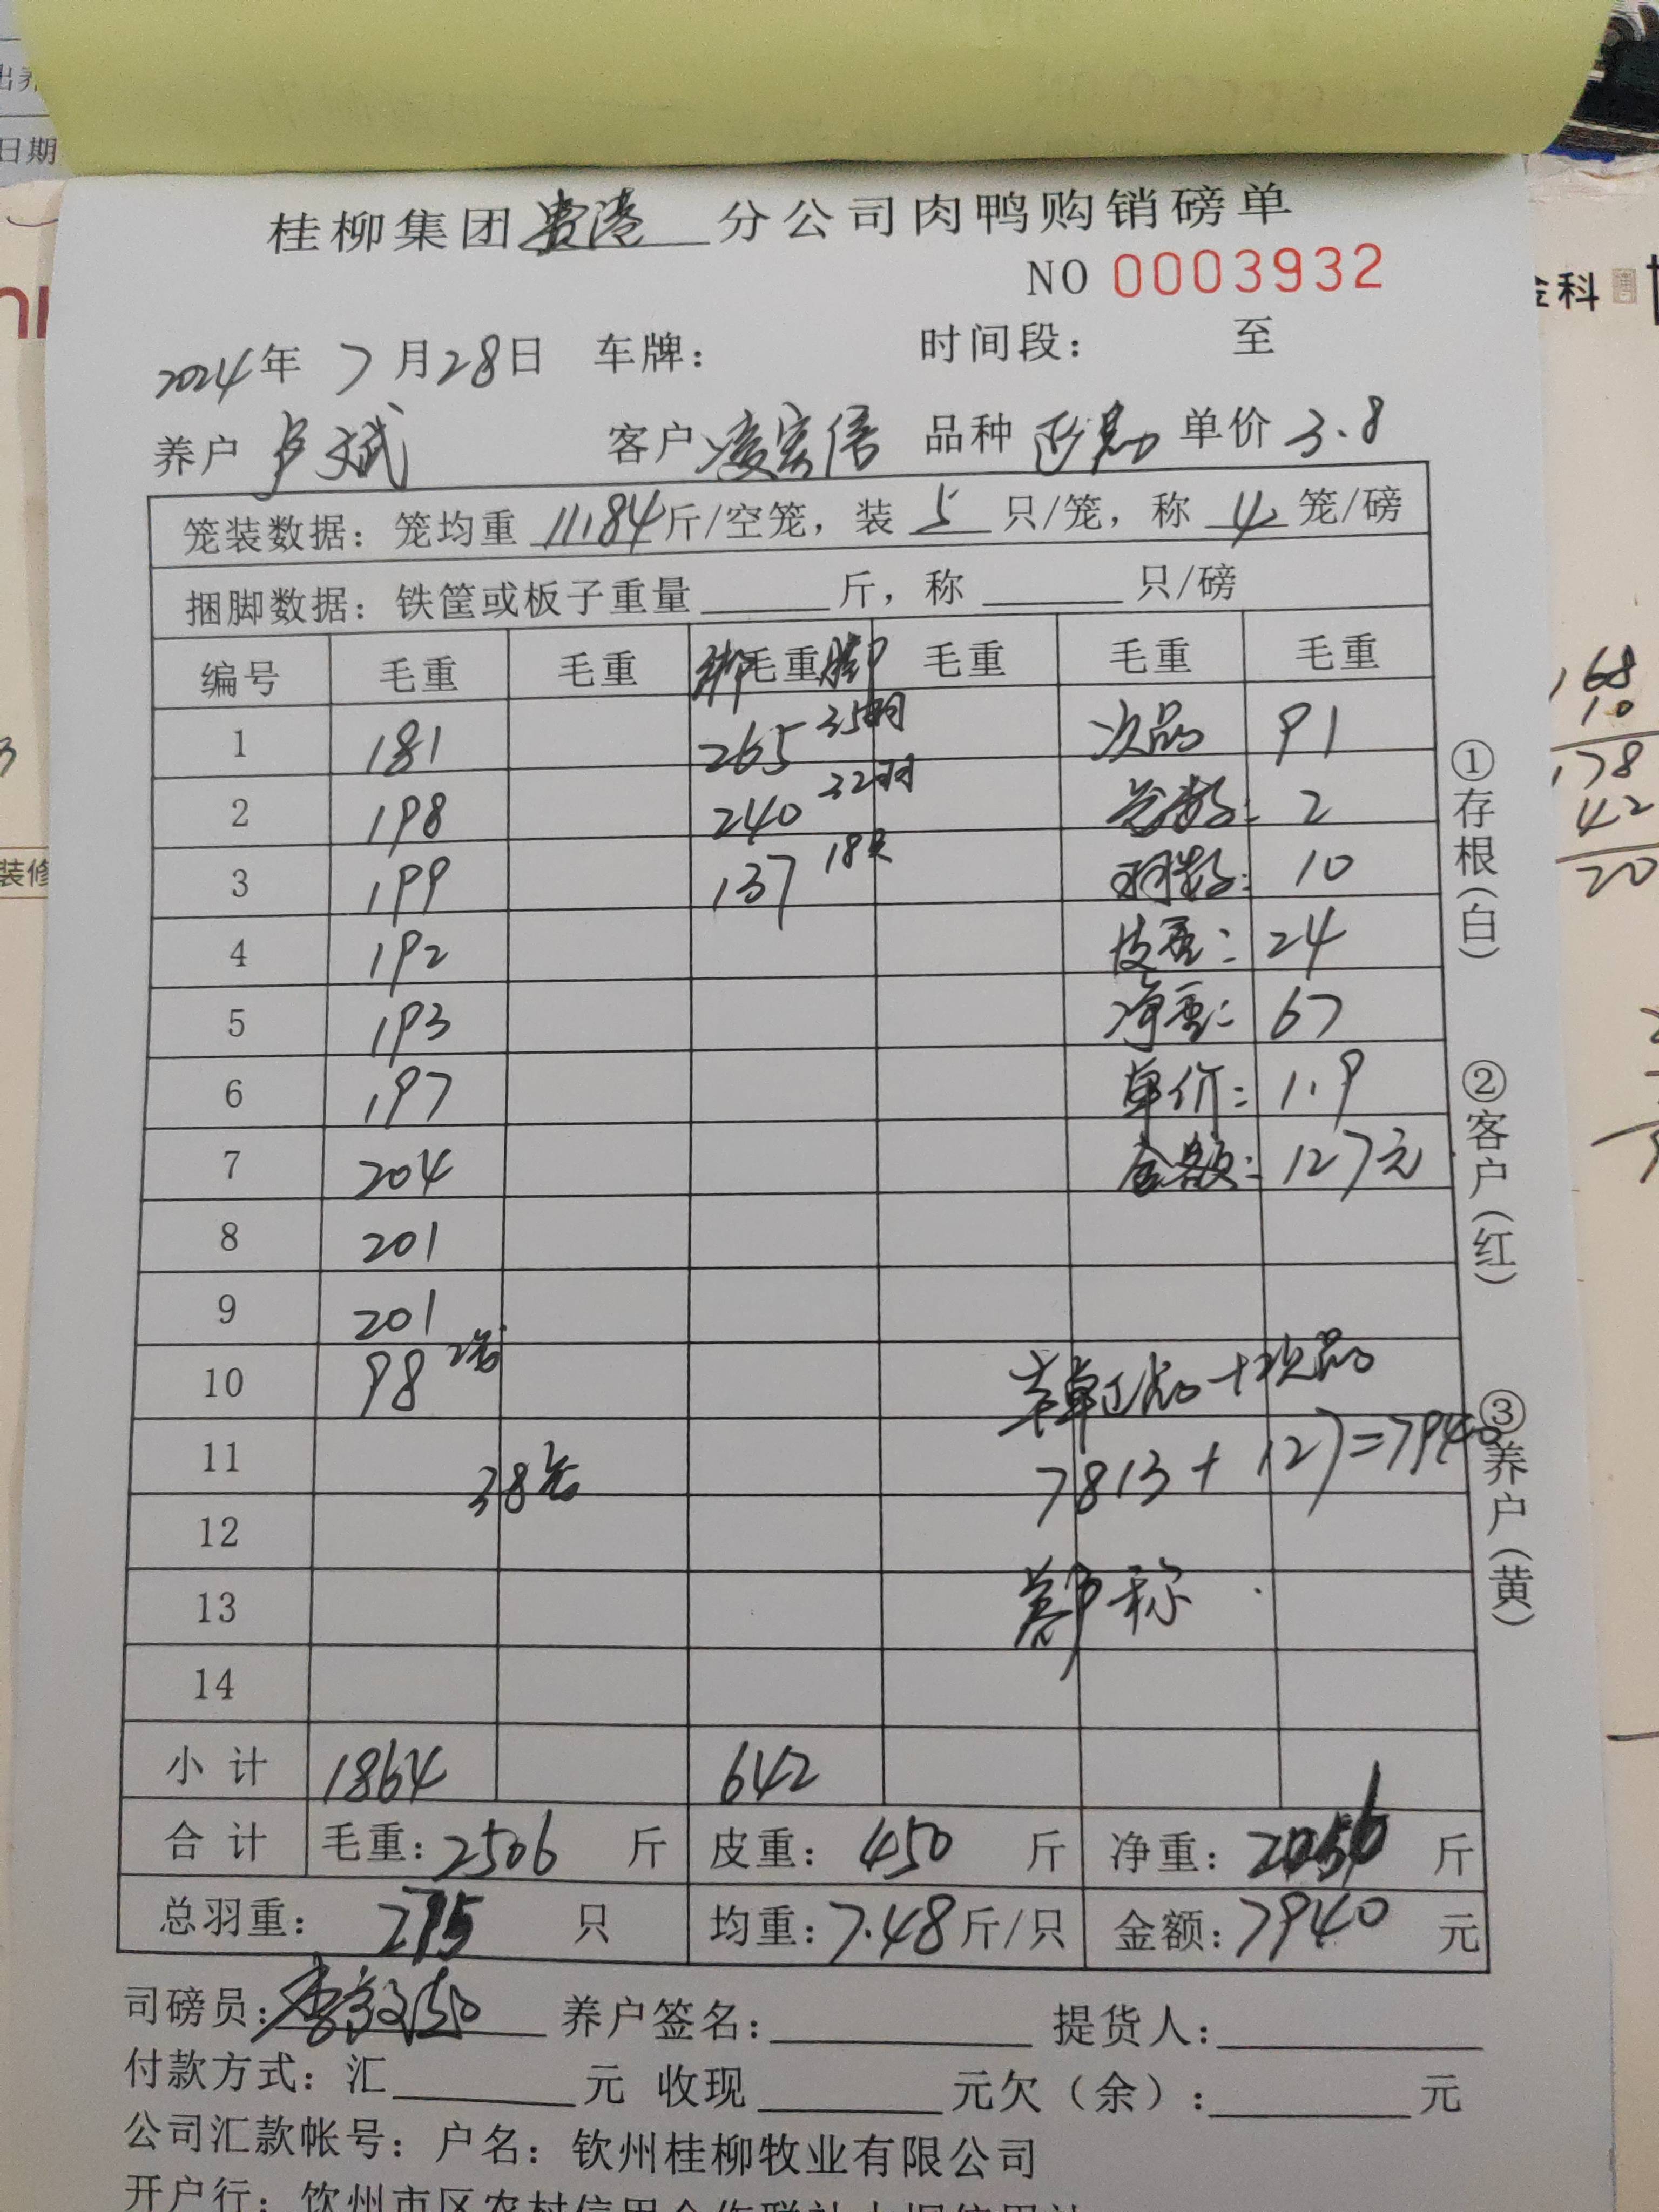 出养
日期
桂柳集团贵港分公司肉鸭购销磅单
NO 0003932
2024年 7月28日 车牌: 时间段: 至
养户 卢文斌 客户 凌宏信 品种 单价 3.8
笼装数据: 笼均重 11.84斤/空笼, 装 5 只/笼, 称 4 笼/磅
捆脚数据: 铁筐或板子重量 斤, 称 只/磅
编号 毛重 毛重 绑毛重脚 毛重 毛重 毛重
1 181 265 35羽 次品 91
2 198 240 32羽 笼数: 2
3 199 137 18只 羽数: 10
4 192 皮重: 24
5 193 净重: 67
6 197 单价: 1.9
7 204 金额: 127元
8 201
9 201
10 98 2笼 +次品
11 38笼 7813 + 127=7940
12
13 称
14
小计 1864 642
合计 毛重: 2506 斤 皮重: 450 斤 净重: 2056 斤
总羽重: 275 只 均重: 7.48斤/只 金额: 7940 元
司磅员: 养户签名: 提货人:
付款方式: 汇 元 收现 元欠(余): 元
公司汇款帐号: 户名: 钦州桂柳牧业有限公司
开户行: 钦州市区农村信用合作联社
①存根(白)
②客户(红)
③养户(黄)
金科
装修
168
10
178
42
20